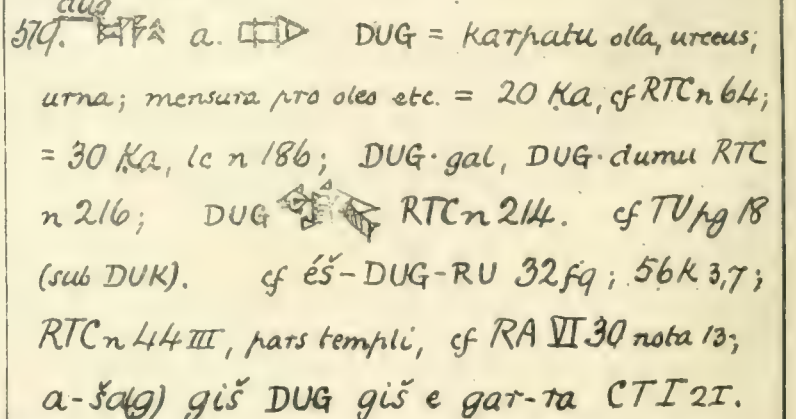 dug
579. a. DUG = karpatu olla, urceus;
urna; mensura pro oleo etc. = 20 Ka, cf RTC n 64;
= 30 Ka, lc n 186; DUG·gal, DUG·dumu RTC
n 216; DUG RTC n 214. cf TU pg 18
(sub DUK). cf éš-DUG-RU 32 fq; 56 k 3,7;
RTC n 44 III, pars templi, cf RA VI 30 nota 13;
a-ša(g) giš DUG giš e gar-ra CT I 21.